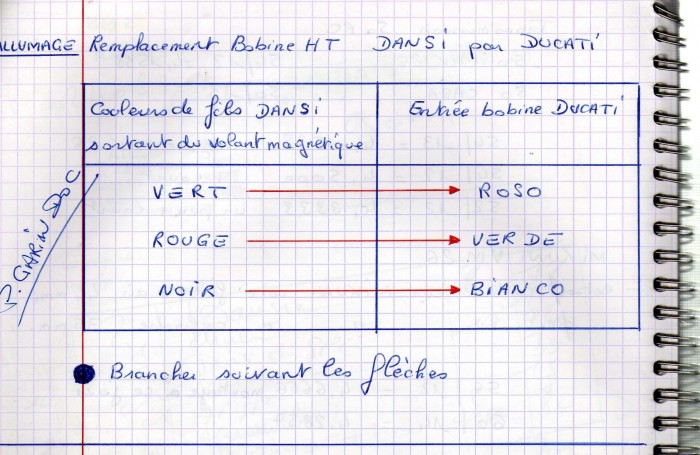 ALLUMAGE Remplacement Bobine HT DANSI par DUCATI
Couleurs de fils DANSI
sortant du volant magnétique
Entrée bobine DUCATI
VERT → ROSO
ROUGE → VERDE
NOIR → BIANCO
GARIN DOC
Brancher suivant les flèches